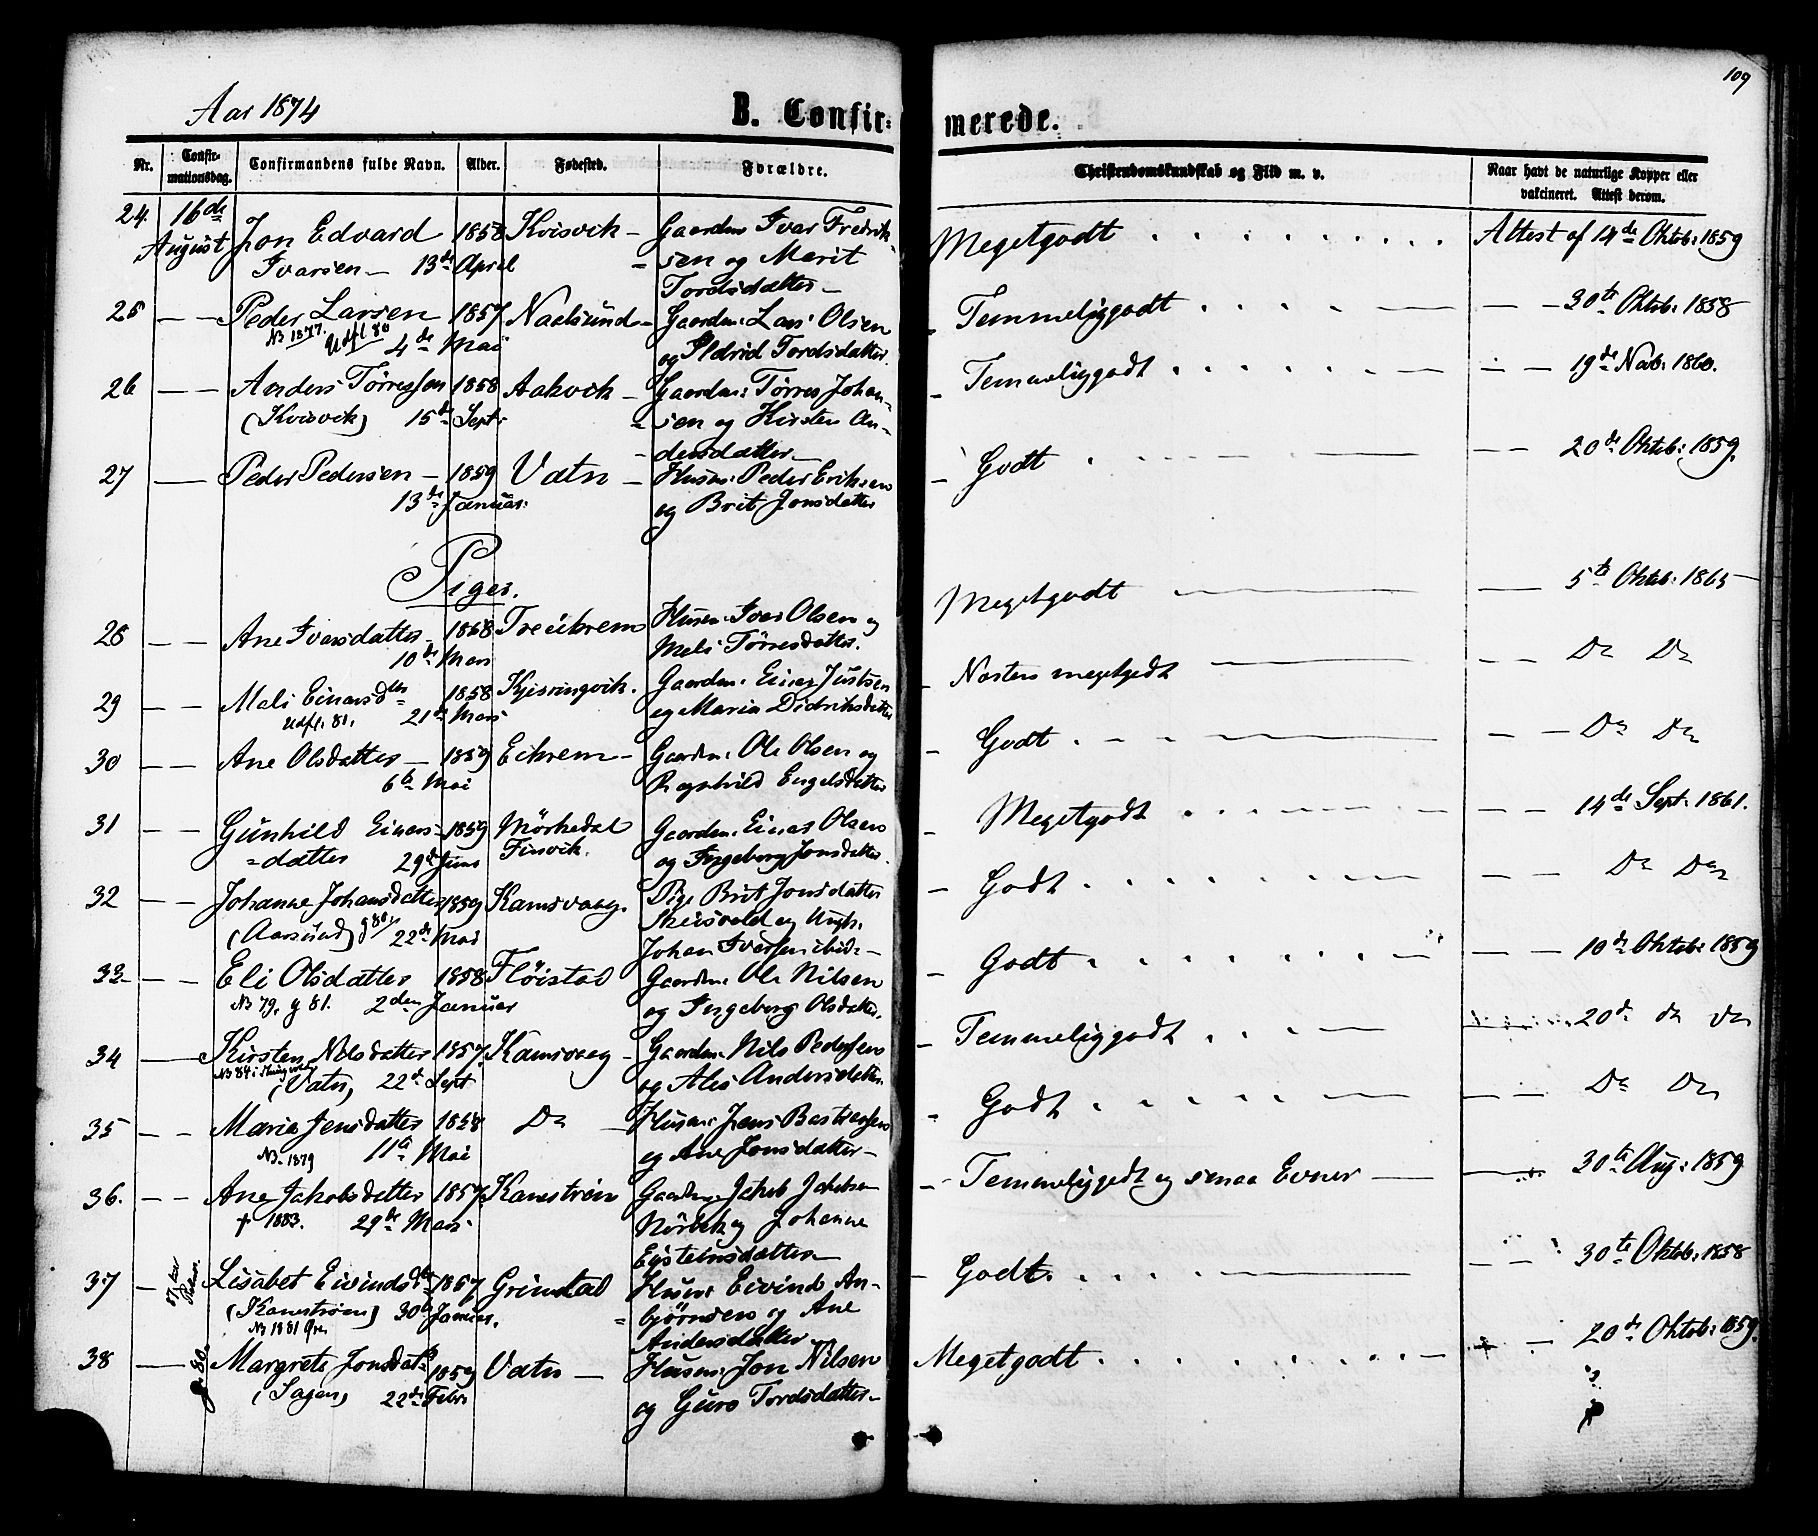 109
Aar 1874
B. Confirmerede.
Nr. Confirmationsdag. Confirmandens fulde Navn. Alder. Fødested. Forældre. Christendomskundskab og Flid m. v. Naar havt de naturlige Kopper eller vakcineret. Attest derom.
24. 16de Jon Edvard 1858 Kvisvik – Gaardm Ivar Fredrik- Megetgodt Attest af 14de Oktob: 1859
August Ivarsen – 13de April sen og Marit
Tordsdatter –
25 – – Peder Larsen 1857 Naalsund – Gaardm: Lars Olsen Temmeliggodt – – 30te Oktob: 1858
N3 1877. Udfl 80 4de Mai og Ildrid Tordsdatter
26 – – Anders Tørressen 1858 Aakvik – Gaardm: Tørres Johan- Temmeliggodt – – 19de Nob: 1860.
(Kvisvik) 15de Sept: sen og Kirsten An-
dersdatter –
27 – Peder Pedersen – 1859 Vatn – Husm: Peder Eriksen Godt – – 20de Oktob: 1859.
13de Januar: og Brit Jonsdatter
Piger.
28 – – Ane Ivarsdatter – 1858 Treekrem Husm: Ivar Olsen og Megetgodt – 5te Oktob: 1865
10de Mars Mali Tørresdatter.
29 – – Mali Einarsdtr 1858 Kjøringvik. Gaardm: Einar Justsen Næsten megetgodt – – Do Do
Udfl. 81. 21de Mars og Maria Didriksdatter
30 – – Ane Olsdatter – 1859 Eikrem – Gaardm: Ole Olsen og Godt – – Do Do
6te Mai Ragnhild Engelsdatter
31 – – Gunhild Einars- 1859 Mørkedal Gaardm: Einar Olsen Megetgodt – – 14de Sept: 1861.
=datter 29de Juni Finvik. og Ingeborg Jonsdatter.
32 – – Johanne Johansdatter 1859 Ramsvaag. Pige Brit Jonsdatter Godt – – Do Do
(Aarsund) 22de Mai og Ungk.
Johan Iversen ibid: –
33 – – Eli Olsdatter 1858 Fløistad Gaardm: Ole Nilsen Godt – – 10de Oktob: 1859
N3 79. g 81. 2den Januar og Ingeborg Olsdatter.
34 – Kirsten Nilsdatter 1857. Ramsvaag – Gaardm: Nils Pedersen Temmeliggodt 20de do do
(Vatn) 22de Sept og Ales Andersdatter.
35 – – Maria Jensdatter 1858 Do – Husm: Jens Bastiansen Godt – – Do Do
N3 1879 11te Mai og Ane Jonsdatter –
36. – – Ane Jakobsdatter 1857. Kanestrøm Gaardm: Jakob Jakobsen Temmeliggodt og smaa Evner – 30te Aug: 1859
† 1883. 29de Mars og Johanne
Eysteinsdatter –
37 – Lisabet Eivindsdtr 1857 Grimstad Husm: Eivind An- Godt. – – 30te Oktob: 1858
(Kanestrøm) 30te Januar. bjørnsen og Ane
N3 1881 Øre Andersdatter
38 – Margrete Jonsdatr 1859 Vatn – Husm: Jon Nilsen Megetgodt – 20de Oktob: 1859.
(Sagen) 22de Febr og Guro Tordsdatter –